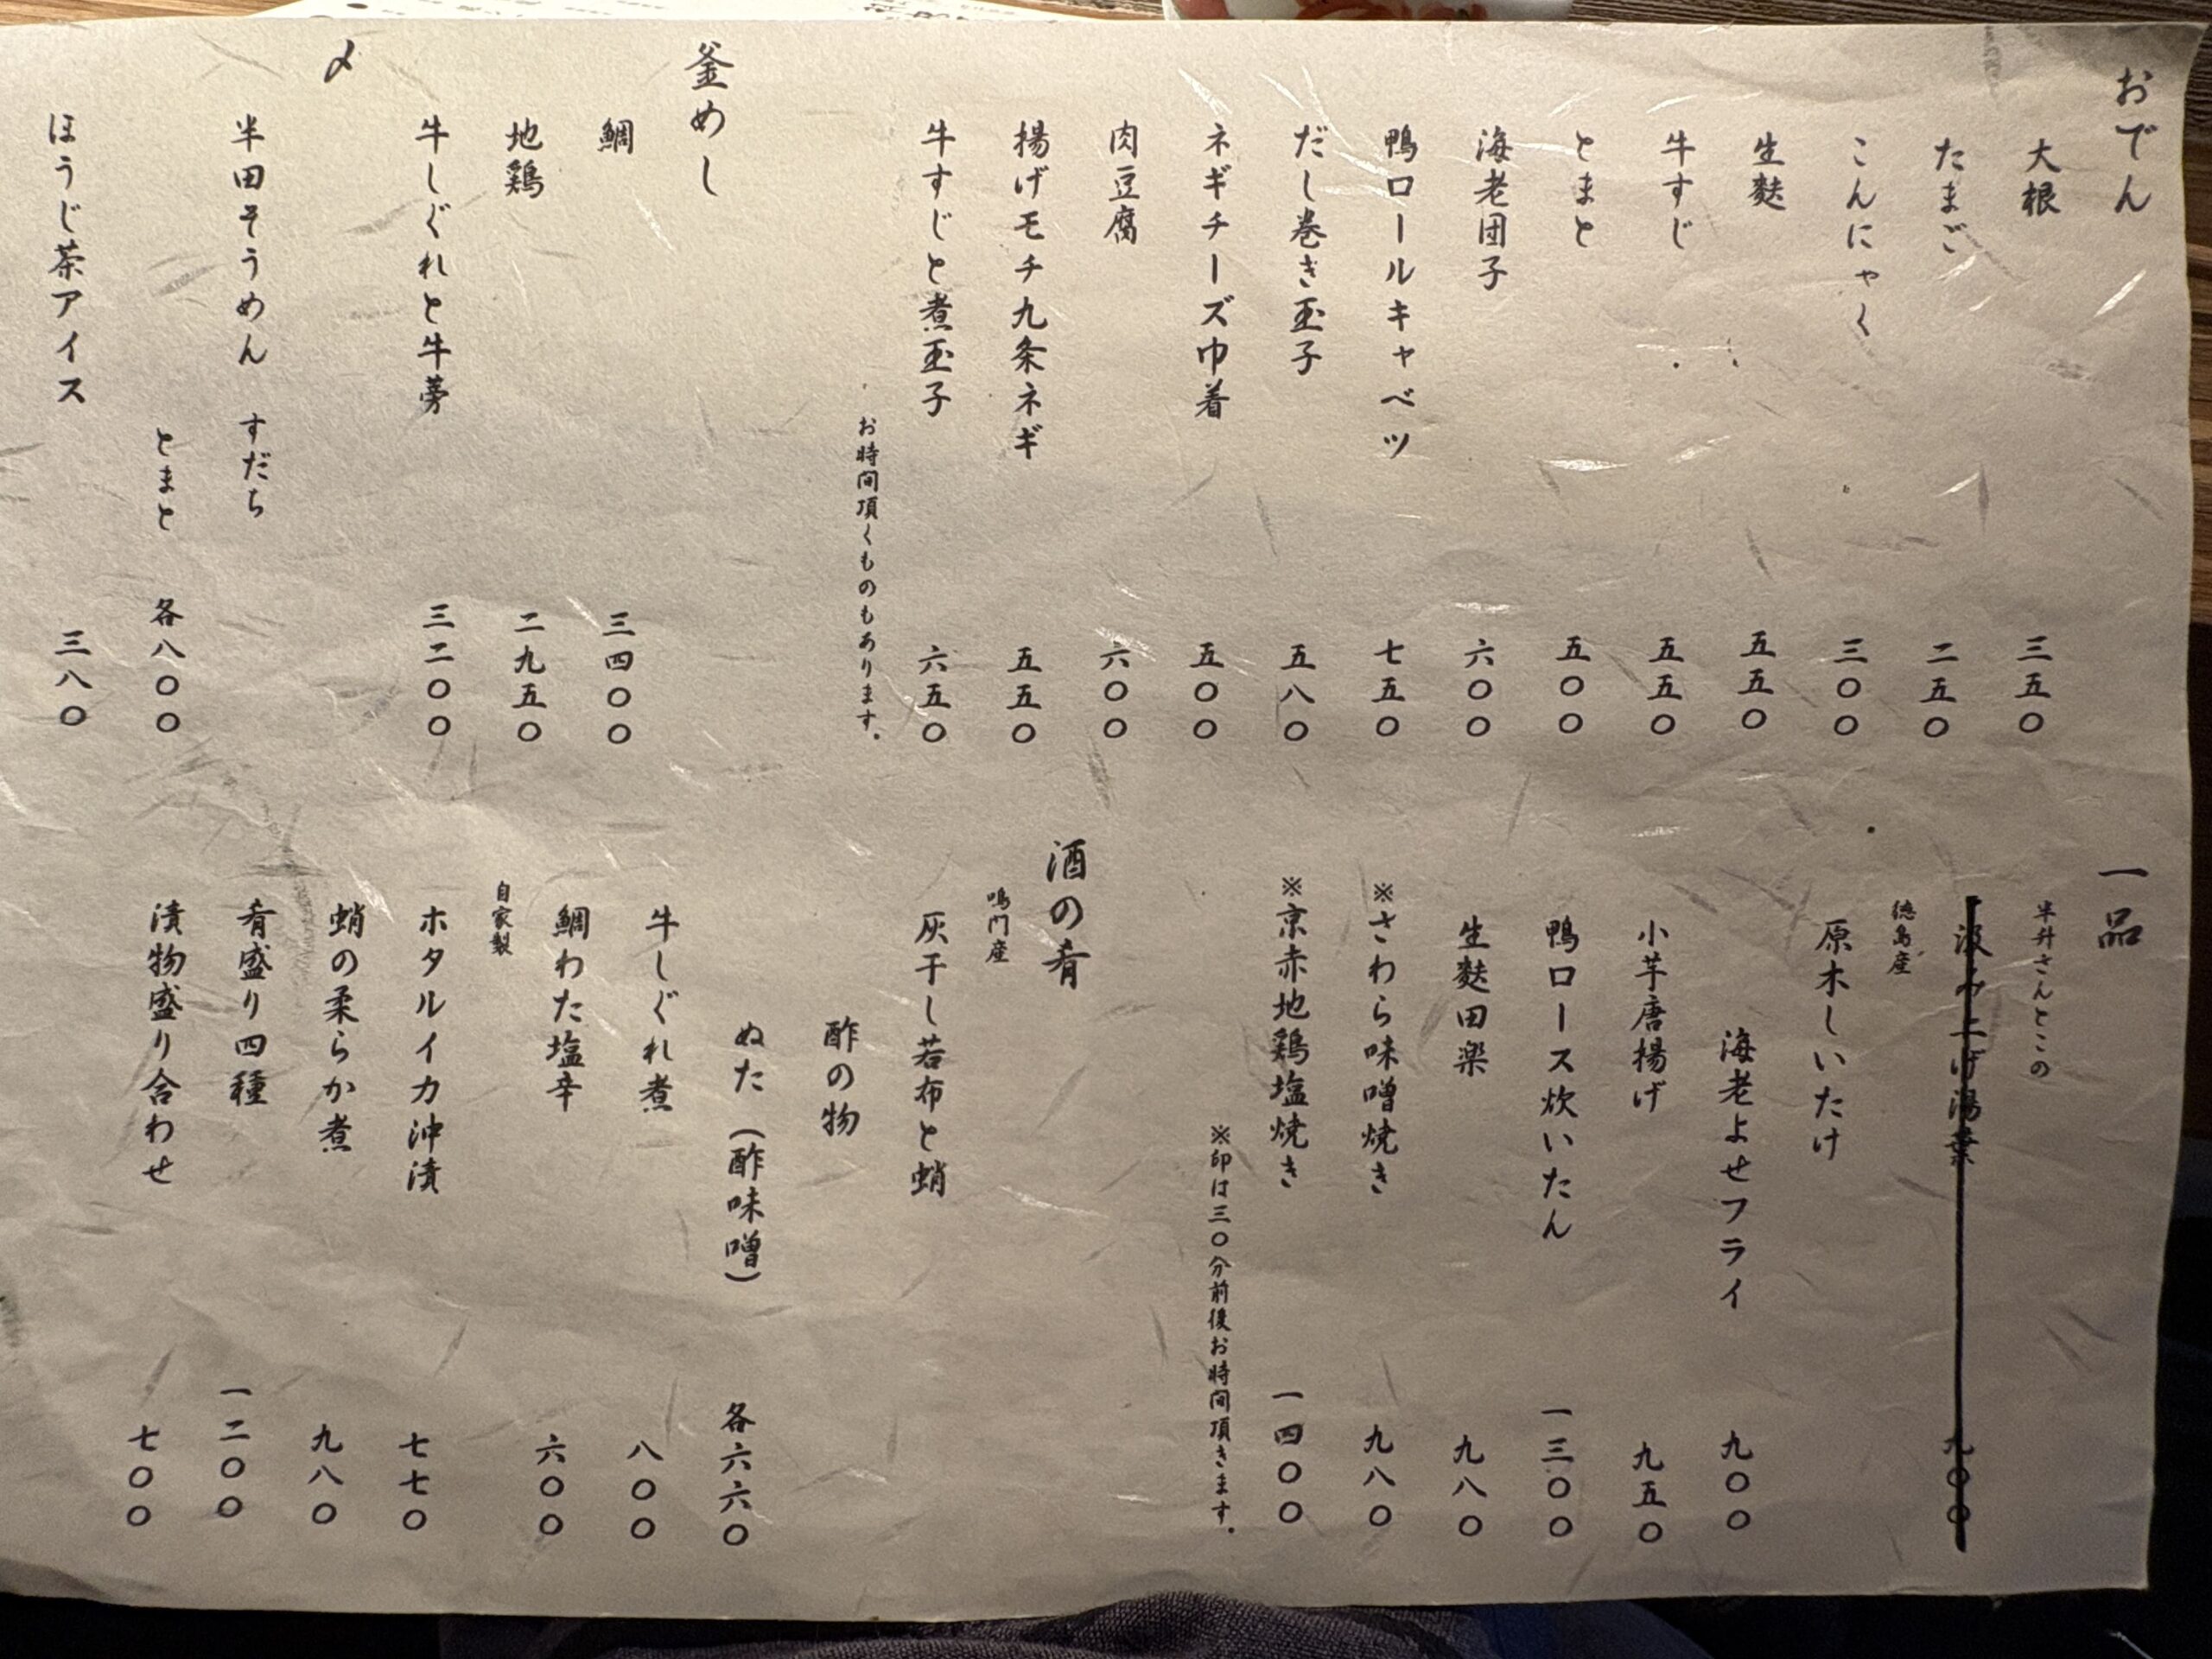 おでん
大根 三五〇
たまご 二五〇
こんにゃく 三〇〇
生麩 五五〇
牛すじ 五五〇
とまと 五〇〇
海老団子 六〇〇
鴨ロールキャベツ 七五〇
だし巻き玉子 五八〇
ネギチーズ巾着 五〇〇
肉豆腐 六〇〇
揚げモチ九条ネギ 五五〇
牛すじと煮玉子 六五〇
お時間頂くものもあります。
釜めし
鯛 三四〇〇
地鶏 二九五〇
牛しぐれと牛蒡 三二〇〇
〆
半田そうめん すだち
とまと 各八〇〇
ほうじ茶アイス 三八〇
一品
半升さんとこの
汲み上げ湯葉 九〇〇
徳島産
原木しいたけ
海老よせフライ 九〇〇
小芋唐揚げ 九五〇
鴨ロース炊いたん 一三〇〇
生麩田楽 九八〇
※さわら味噌焼き 九八〇
※京赤地鶏塩焼き 一四〇〇
※印は三〇分前後お時間頂きます。
酒の肴
鳴門産
灰干し若布と蛸
酢の物
ぬた（酢味噌） 各六六〇
牛しぐれ煮 八〇〇
鯛わた塩辛 六〇〇
自家製
ホタルイカ沖漬 七七〇
蛸の柔らか煮 九八〇
肴盛り四種 一二〇〇
漬物盛り合わせ 七〇〇